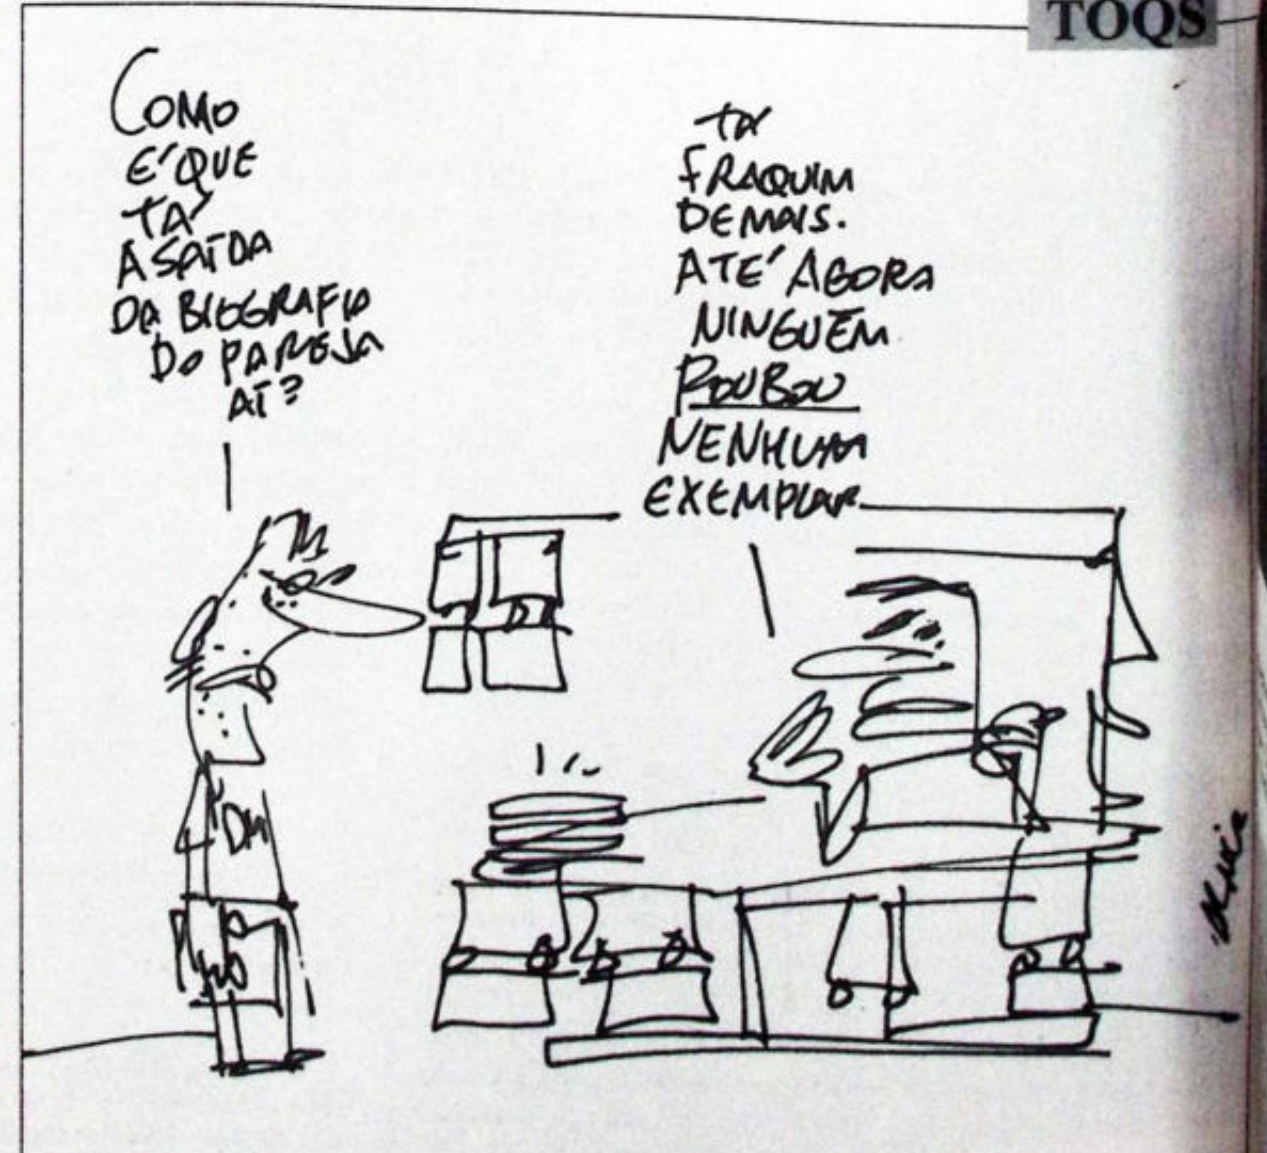 TOQS
COMO
E'QUE
TÁ
A SAÍDA
DA BIOGRAFIA
DO PAREJA
AÍ?
TÁ
FRAQUIM
DEMAIS.
ATÉ AGORA
NINGUÉM
ROUBOU
NENHUM
EXEMPLAR